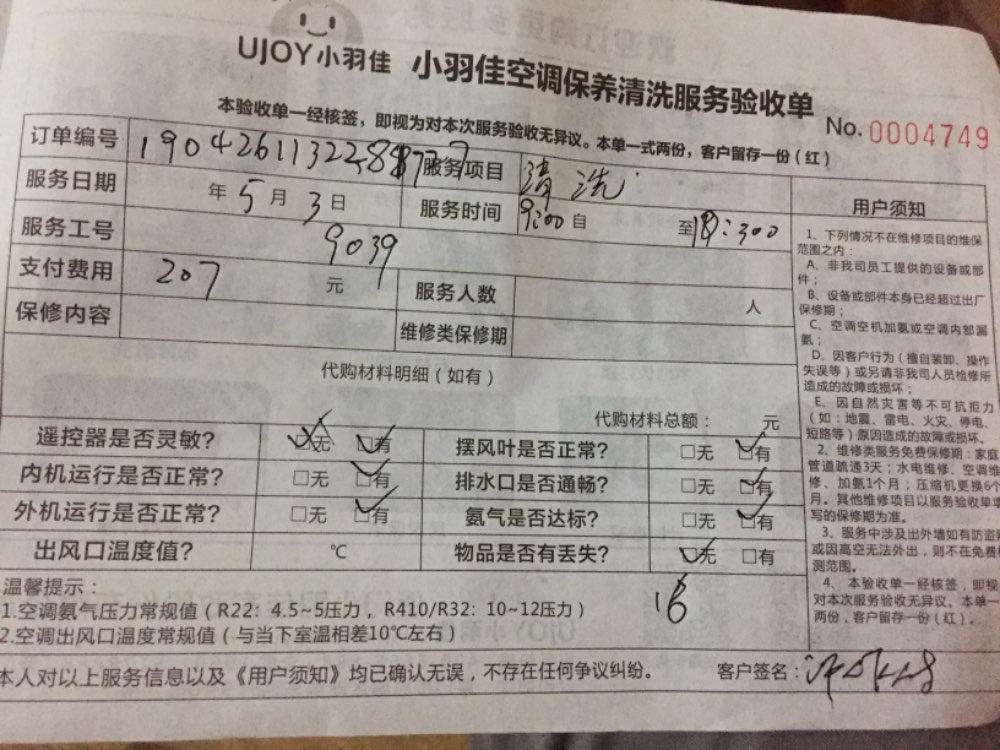 UJOY小羽佳 小羽佳空调保养清洗服务验收单
No. 0004749
本验收单一经核签，即视为对本次服务验收无异议。本单一式两份，客户留存一份（红）
订单编号 服务项目 清洗
服务日期 年5月3日 服务时间 9:00自 至18:300
服务工号 9039
支付费用 207 元 服务人数 人
保修内容 维修类保修期
代购材料明细（如有）
代购材料总额： 元
遥控器是否灵敏? □无 □有 摆风叶是否正常? □无 □有
内机运行是否正常? □无 □有 排水口是否通畅? □无 □有
外机运行是否正常? □无 □有 氨气是否达标? □无 □有
出风口温度值? ℃ 物品是否有丢失? □无 □有
温馨提示：
1.空调氨气压力常规值（R22：4.5~5压力，R410/R32：10~12压力） 16
2.空调出风口温度常规值（与当下室温相差10℃左右）
本人对以上服务信息以及《用户须知》均已确认无误，不存在任何争议纠纷。 客户签名：
用户须知
1、下列情况不在维修项目的维保
范围之内：
A、非我司员工提供的设备或部
件；
B、设备或部件本身已经超过出厂
保修期；
C、空调空机加氨或空调内部漏
氨；
D、因客户行为（擅自装卸、操作
失误等）或另请非我司人员检修所
造成的故障或损坏；
E、因自然灾害等不可抗拒力
（如：地震、雷电、火灾、停电、
短路等）原因造成的故障或损坏。
2、维修类服务免费保修期：家庭
管道疏通3天；水电维修、空调维
修、加氨1个月；压缩机更换6个
月。其他维修项目以服务验收单
写的保修期为准。
3、服务中涉及出外墙如有防盗
或因高空无法外出，则不在免费
测范围。
4、本验收单一经核签，即视
对本次服务验收无异议。本单一
两份，客户留存一份（红）。